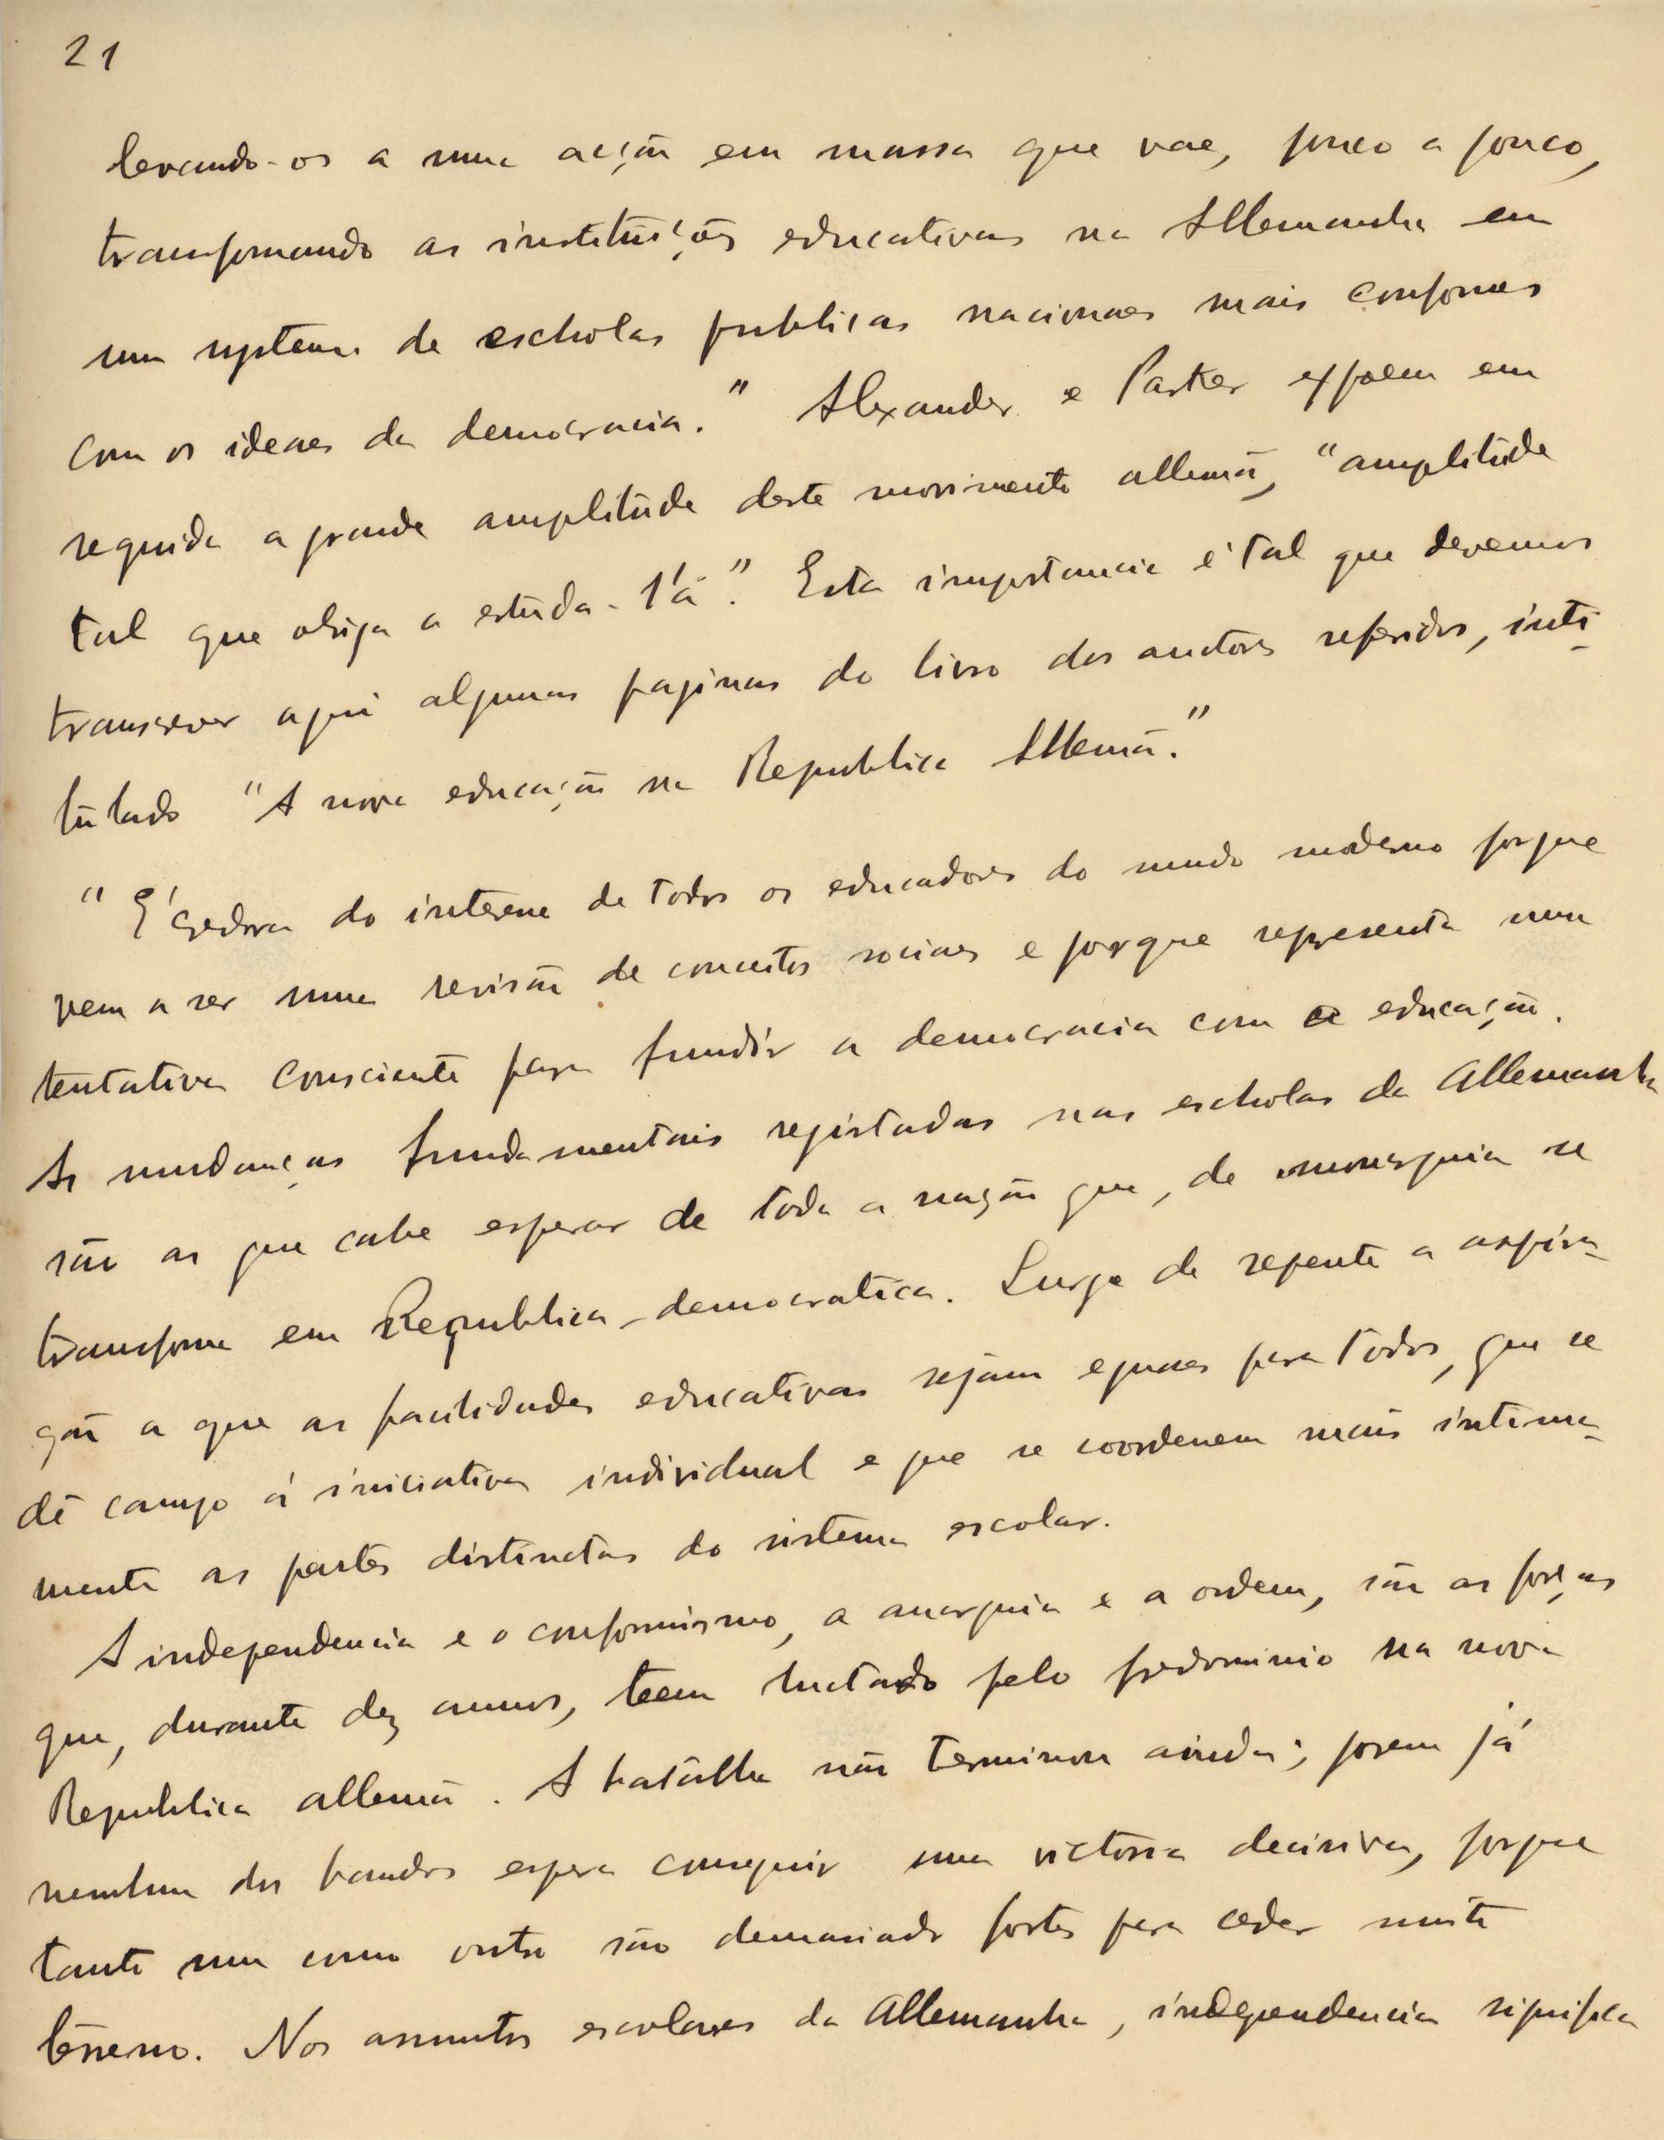 21
levando-os a uma acção em massa que vae, pouco a pouco,
transformando as instituições educativas na Allemanha em
um systema de escholas publicas nacionaes mais conformes
com os ideaes da democracia." Alexander e Parker expoem em
seguida a grande amplitude deste movimento allemã, "amplitude
tal que obriga a estuda-l'a". Esta importancia é tal que devemos
transcrever aqui algumas paginas do livro dos auctores referidos, inti-
tulado "A nova educação na Republica Allemã."
"É credora do interesse de todos os educadores do mundo moderno porque
vem a ser uma revisão de conceitos sociaes e porque representa uma
tentativa consciente para fundir a democracia com a educação.
As mudanças fundamentais registadas nas escholas da Allemanha
são as que cabe esperar de toda a nação que, de monarquia se
transforma em Republica-democratica. Surge de repente a aspira-
ção a que as facilidades educativas sejam eguaes para todos, que se
dê campo á iniciativa individual e que se coordenem mais intima-
mente as partes distinctas do sistema escolar.
A independencia e o conformismo, a anarquia e a ordem, são as forças
que, durante dez annos, teem luctado pelo predominio na nova
Republica allemã. A batalha não terminou ainda; porem já
nenhum dos bandos espera conseguir uma victoria decisiva, porque
tanto um como outro são demasiado fortes para ceder muito
terreno. Nos assuntos escolares da Allemanha, independencia significa